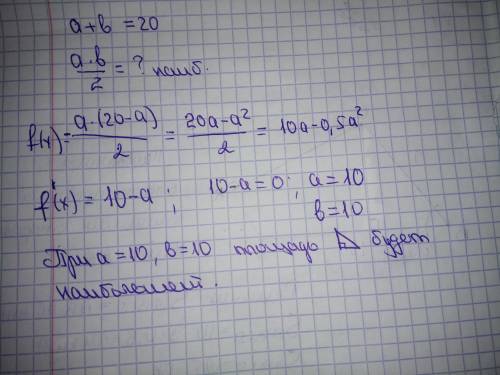 a+b =20
a·b/2 = ? наиб.
f(x)= a·(20-a)/2 = 20a-a²/2 = 10a-0,5a²
f'(x) = 10-a ; 10-a=0; a=10
b=10
При a=10, b=10 площадь ⊿ будет
наибольшей.